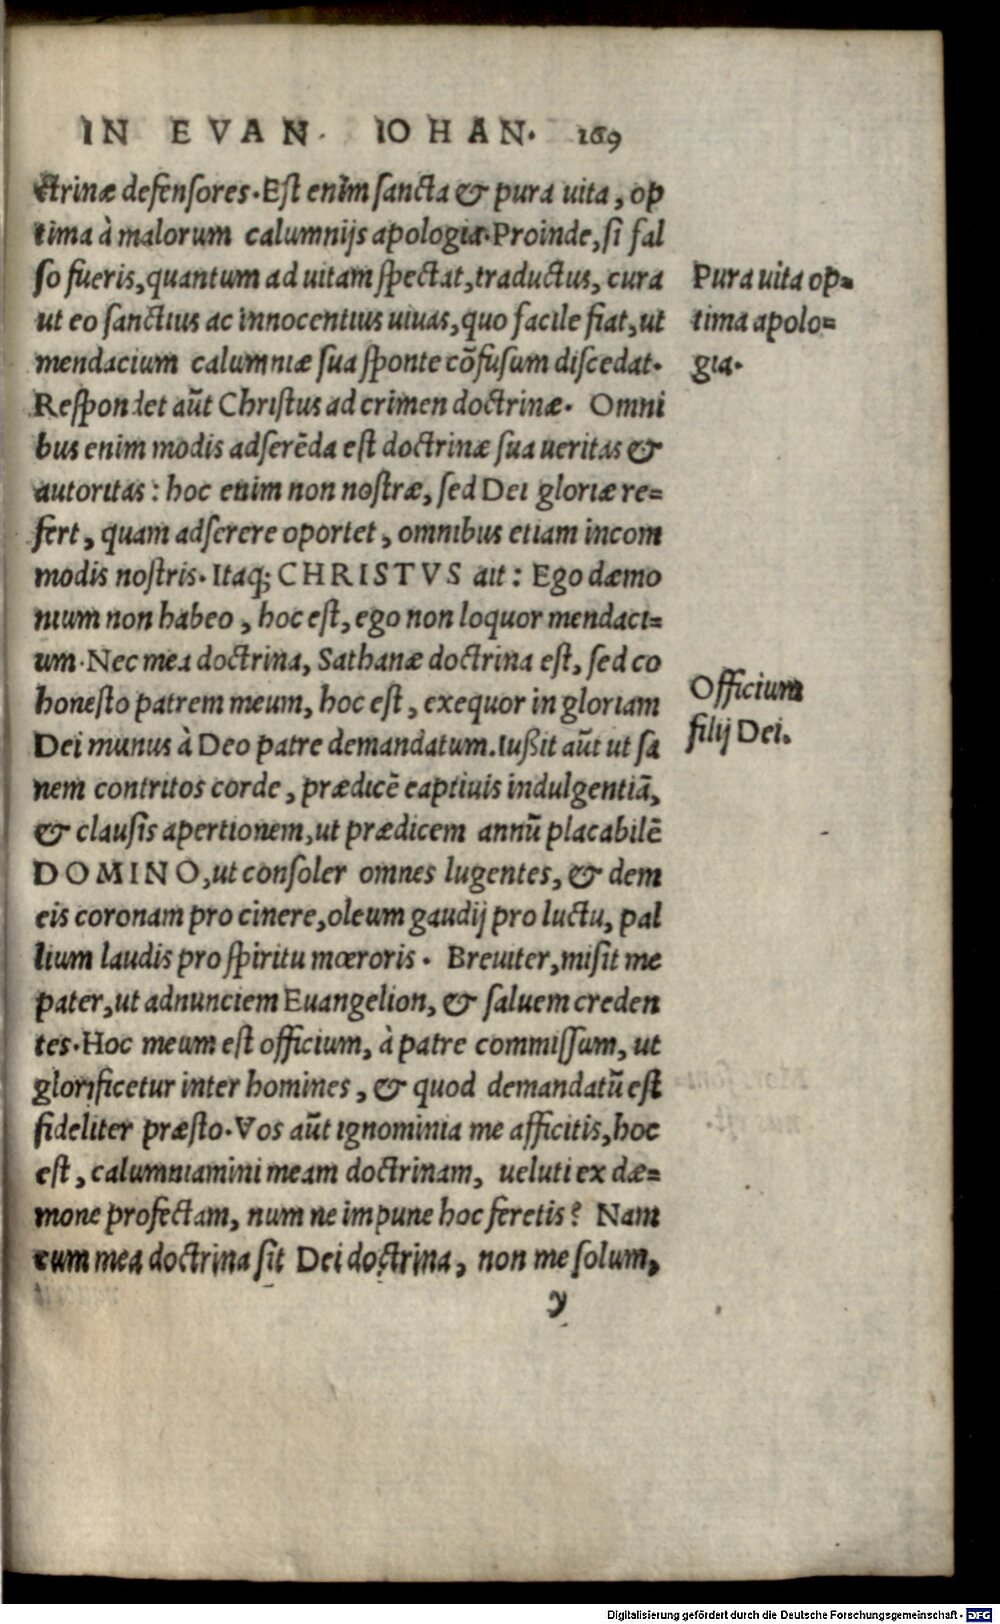 IN EVAN. IOHAN. 169
ctrinæ defensores. Est enim sancta & pura uita, op
tima à malorum calumnijs apologia. Proinde, si fal
so fueris, quantum ad uitam spectat, traductus, cura
ut eo sanctius ac innocentius uiuas, quo facile fiat, ut
mendacium calumniæ sua sponte cõfusum discedat.
Respondet aũt Christus ad crimen doctrinæ. Omni
bus enim modis adserẽda est doctrinæ sua ueritas &
autoritas: hoc enim non nostræ, sed Dei gloriæ re=
fert, quam adserere oportet, omnibus etiam incom
modis nostris. Itaq; CHRISTVS ait: Ego dæmo
nium non habeo, hoc est, ego non loquor mendaci=
um. Nec mea doctrina, Sathanæ doctrina est, sed co
honesto patrem meum, hoc est, exequor in gloriam
Dei munus à Deo patre demandatum. Iußit aũt ut sa
nem contritos corde, prædicẽ captiuis indulgentiã,
& clausis apertionem, ut prædicem annũ placabilẽ
DOMINO, ut consoler omnes lugentes, & dem
eis coronam pro cinere, oleum gaudij pro luctu, pal
lium laudis pro spiritu mœroris. Breuiter, misit me
pater, ut adnunciem Euangelion, & saluem creden
tes. Hoc meum est officium, à patre commissum, ut
glorificetur inter homines, & quod demandatũ est
fideliter præsto. Vos aũt ignominia me afficitis, hoc
est, calumniamini meam doctrinam, ueluti ex dæ=
mone profectam, num ne impune hoc feretis? Nam
cum mea doctrina sit Dei doctrina, non me solum,
y
Pura uita op=
tima apolo=
gia.
Officium
filij Dei.
Digitalisierung gefördert durch die Deutsche Forschungsgemeinschaft - DFG